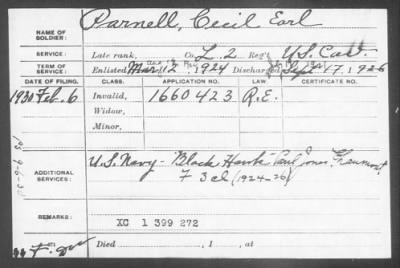 NAME OF SOLDIER: Parnell, Cecil Earl
SERVICE: Late rank, Co. L. 2 Reg't U.S. Cav.
TERM OF SERVICE: Enlisted Mar 12, 1924 Discharged Sept 17, 1926
DATE OF FILING. CLASS. APPLICATION NO. LAW CERTIFICATE NO.
1930 Feb. 6 Invalid, 1660423 R.E.
Widow,
Minor,
ADDITIONAL SERVICES: U.S. Navy - "Black Hawk" Paul Jones,
F 3 cl (1924-26)
REMARKS: XC 1 399 272
Died , 1 , at